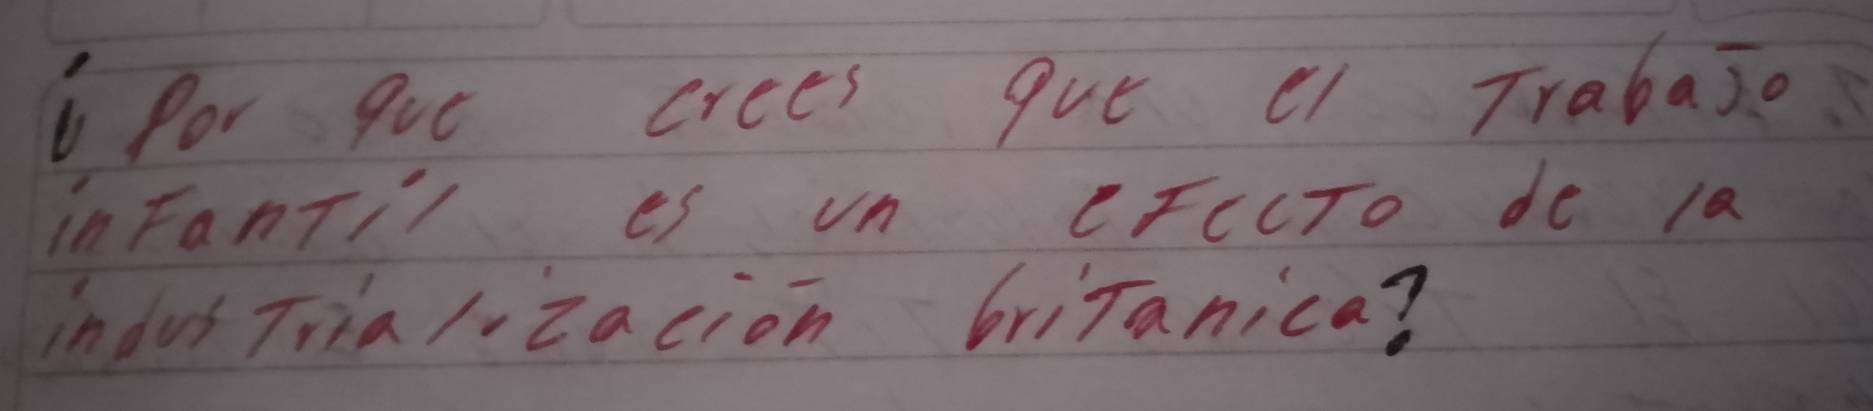 ¿Por que crees que el Trabajo
infantil es un efecto de la
industrialización britanica?